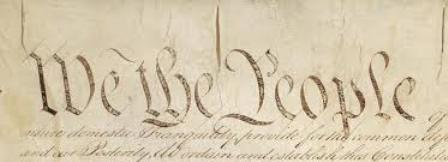 We the People
insure domestic Tranquility, provide for the common
and our Posterity, do ordain and establish this